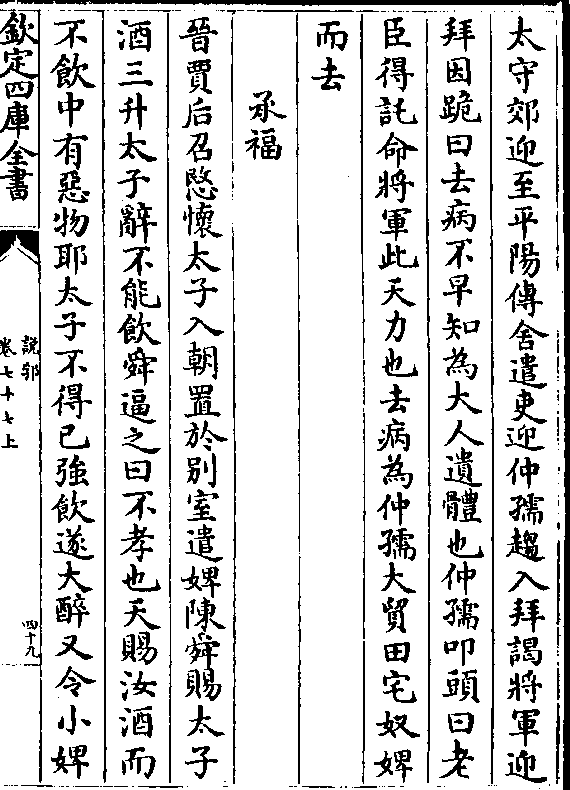 太守郊迎至平陽傳舍遣吏迎仲孺趨入拜謁將軍迎
拜因跪曰去病不早知為大人遺體也仲孺叩頭曰老
臣得託命將軍此天力也去病為仲孺大買田宅奴婢
而去
承福
晉賈后召愍懷太子入朝置於别室遣婢陳舜賜太子
酒三升太子辭不能飲舜逼之曰不孝也天賜汝酒而
不飲中有惡物耶太子不得已強飲遂大醉又令小婢
欽定四庫全書
說郛
卷七十七上
四十九